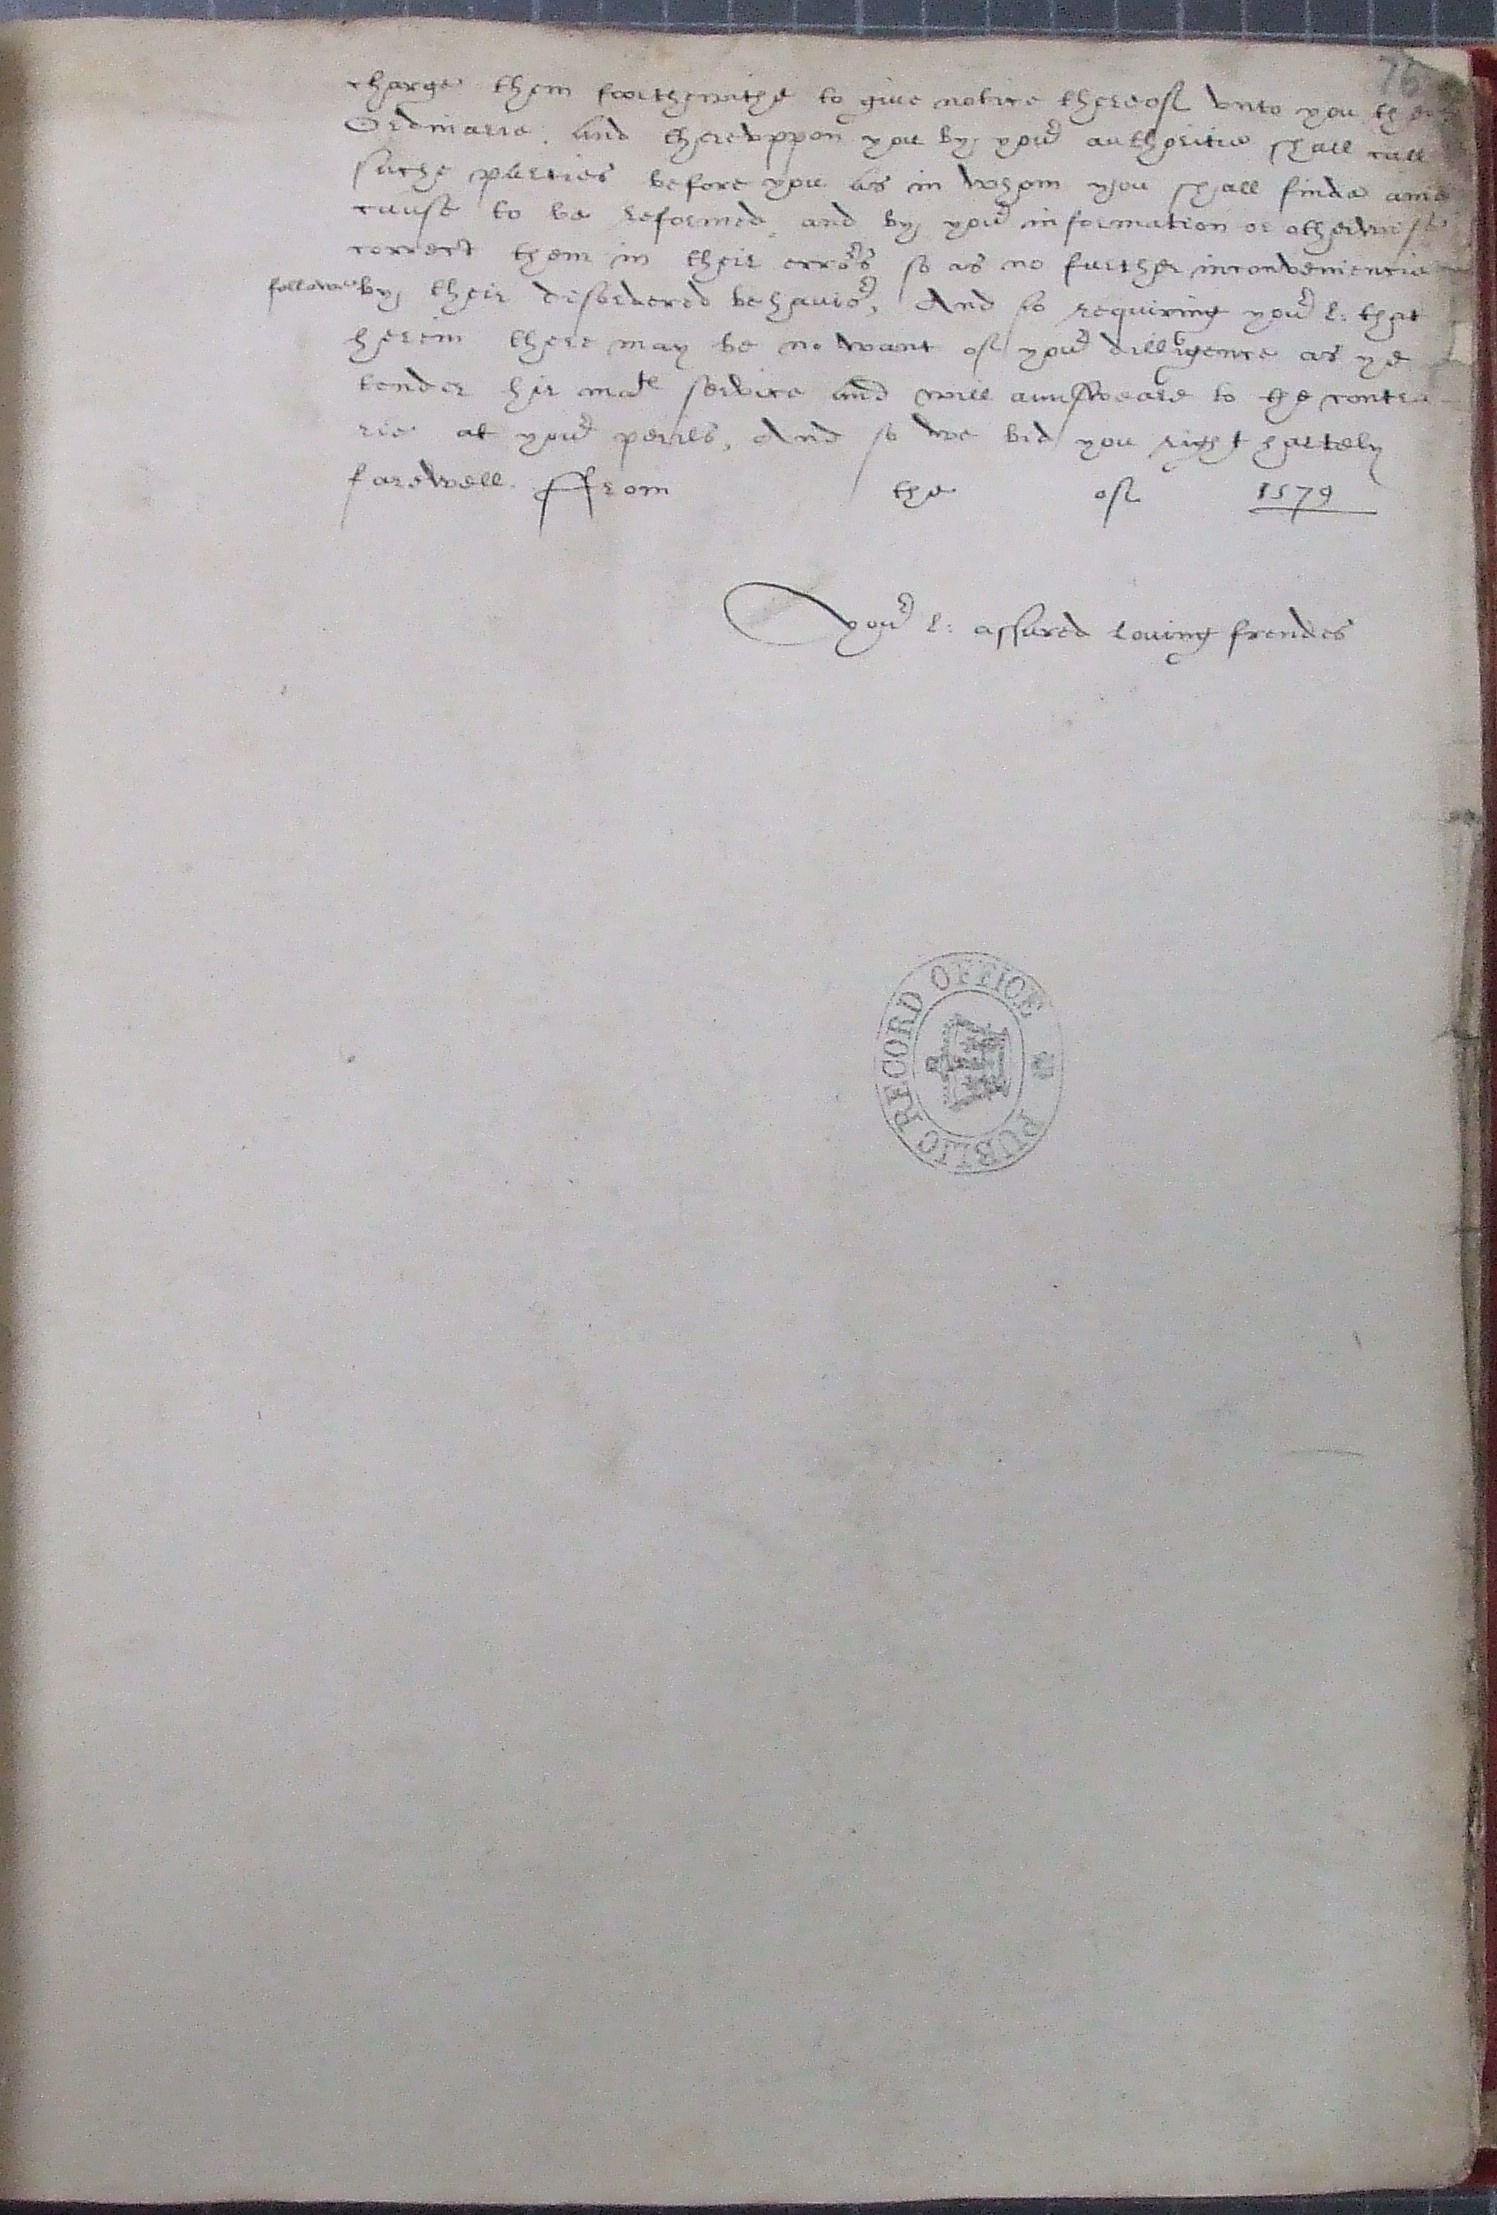 76
charge them foorthewithe to giue notice thereof vnto you their
Ordinarie. And therevppon you by your authoritie shall call
suche parties before you as in whom you shall finde anie
cause to be reformed, and by your information or otherwise
correct them in their errors so as no further inconvenience
followe by their disordered behauior, And so requiring your L: that
herein there may be no want of your dilligence as ye
tender hir matie service and will aunsweare to the contra
rie at your perils, And so we bid you right hartely
farewell. ffrom the of 1579
Your L: assured loving frendes
PUBLIC RECORD OFFICE